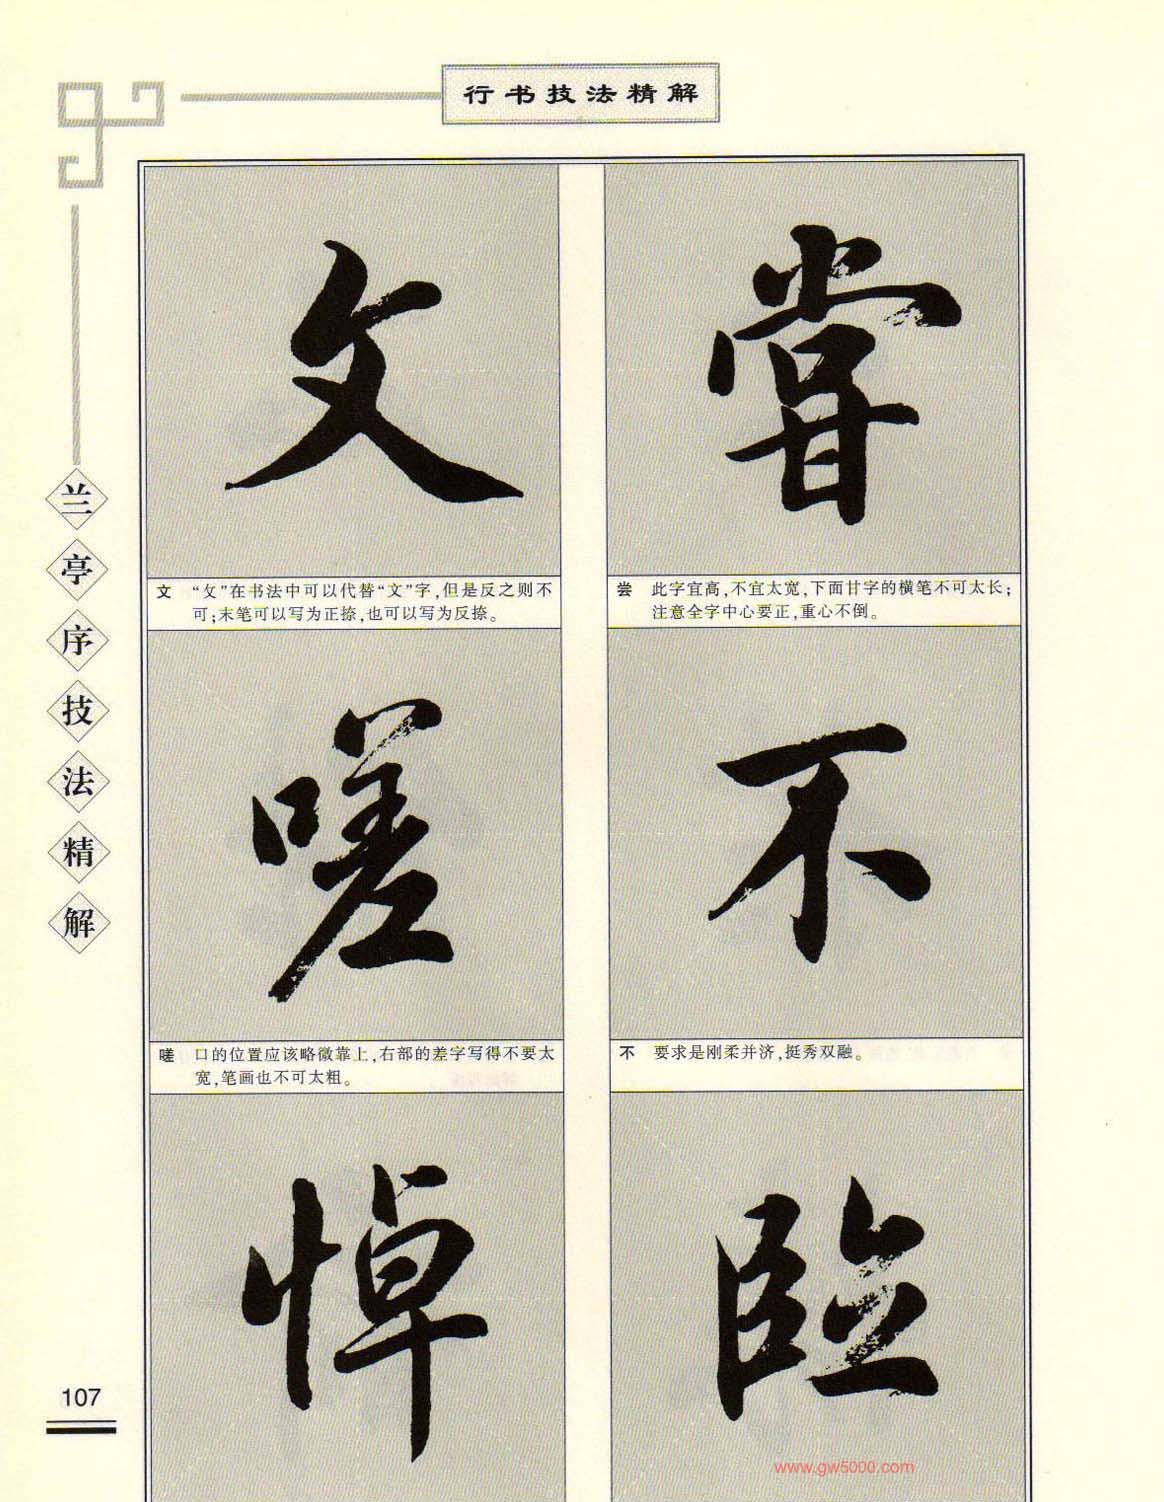 行书技法精解
兰亭序技法精解
尝
尝 此字宜高,不宜太宽,下面甘字的横笔不可太长;
注意全字中心要正,重心不倒。
不
不 要求是刚柔并济,挺秀双融。
临
文
文 “攵”在书法中可以代替“文”字,但是反之则不
可;末笔可以写为正捺,也可以写为反捺。
嗟
嗟 口的位置应该略微靠上,右部的差字写得不要太
宽,笔画也不可太粗。
悼
107
www.gw5000.com